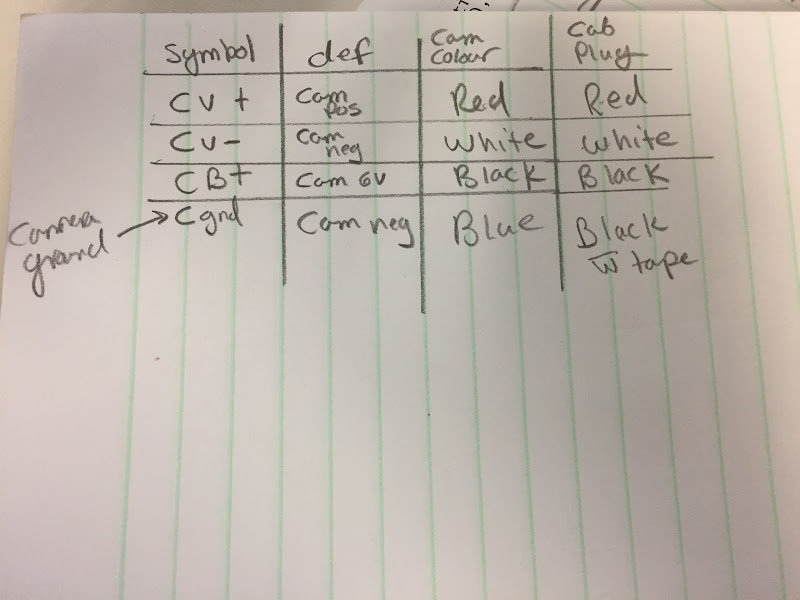 Symbol def Cam Colour Cab Plug
CV+ Cam pos Red Red
CV- Cam neg White White
CB+ Cam 6V Black Black
Camera ground Cgnd Cam neg Blue Black w tape